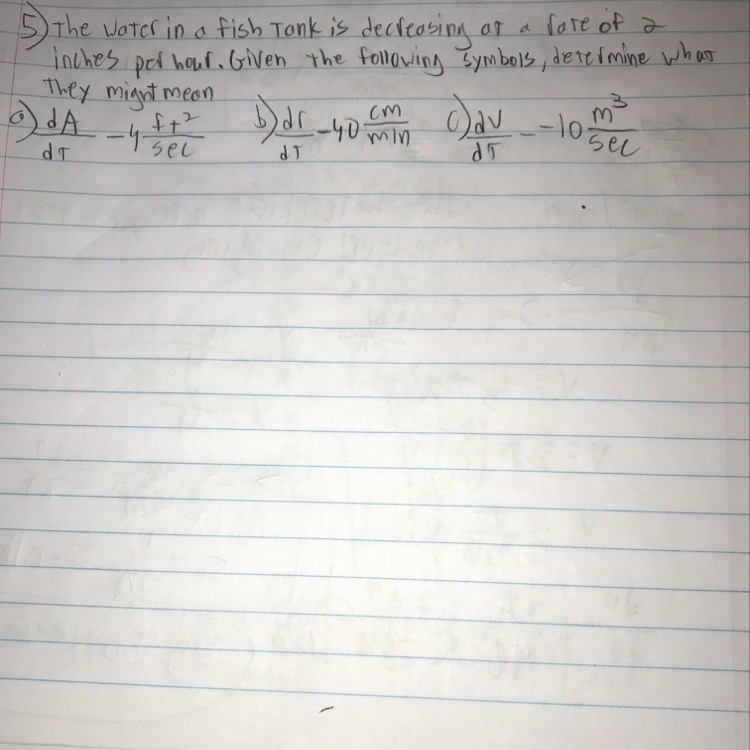 5) The water in a fish Tank is decreasing at a rate of 2
inches per hour. Given the following symbols, determine what
They might mean
a) dA/dT - 4 ft²/sec b) dr/dT - 40 cm/min c) dV/dT - -10 m³/sec